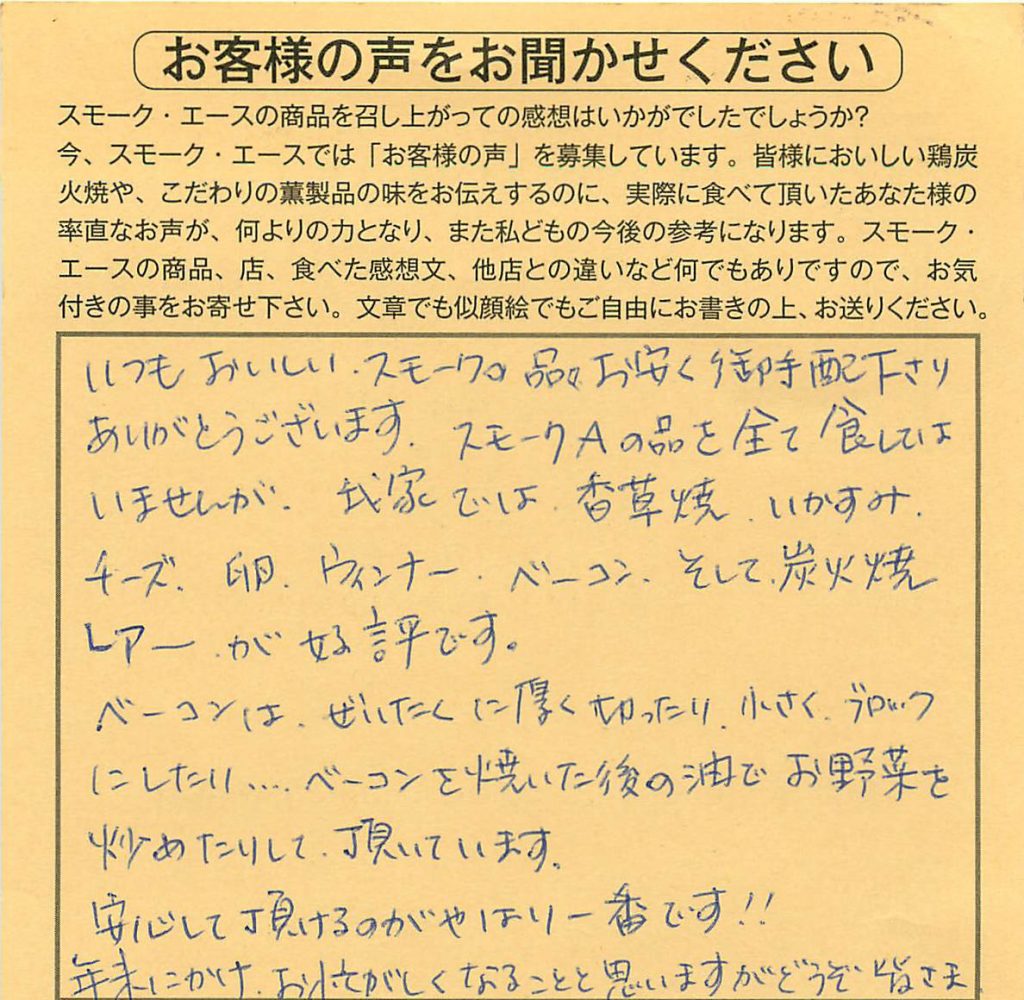 お客様の声をお聞かせください
スモーク・エースの商品を召し上がっての感想はいかがでしたでしょうか?
今、スモーク・エースでは「お客様の声」を募集しています。皆様においしい鶏炭
火焼や、こだわりの薫製品の味をお伝えするのに、実際に食べて頂いたあなた様の
率直なお声が、何よりの力となり、また私どもの今後の参考になります。スモーク・
エースの商品、店、食べた感想文、他店との違いなど何でもありですので、お気
付きの事をお寄せ下さい。文章でも似顔絵でもご自由にお書きの上、お送りください。
いつもおいしい、スモークの品々お安く御手配下さり
ありがとうございます。スモークAの品を全て食しては
いませんが、我家では、香草焼、いかすみ、
チーズ、卵、ウィンナー、ベーコン、そして、炭火焼
レアー、が好評です。
ベーコンは、ぜいたくに厚く切ったり、小さく、ブロック
にしたり....ベーコンを焼いた後の油でお野菜を
炒めたりして、頂いています。
安心して頂けるのがやはり一番です!!
年末にかけ、お忙がしくなることと思いますがどうぞ皆さま